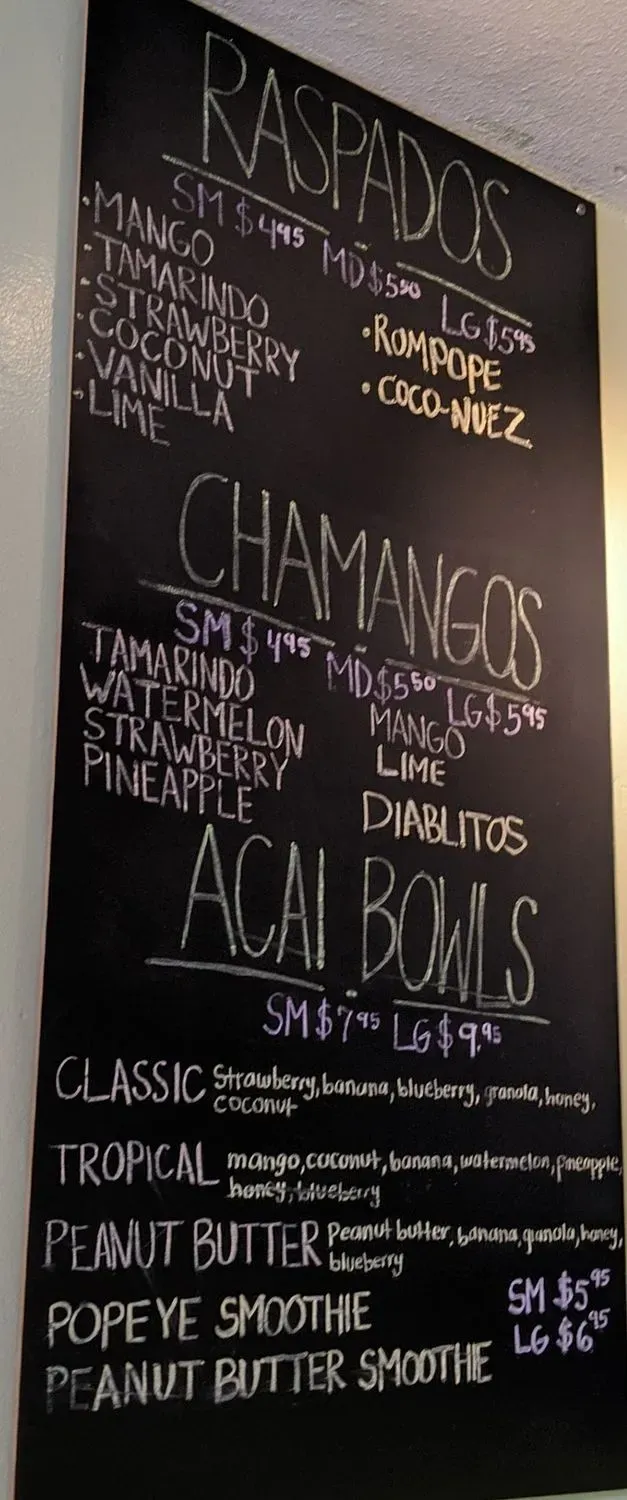 RASPADOS
SM $4.95 MD $5.50 LG $5.95
·MANGO
·TAMARINDO
·STRAWBERRY
·COCONUT
·VANILLA
·LIME
·ROMPOPE
·COCO-NUEZ
CHAMANGOS
SM $4.95 MD $5.50 LG $5.95
TAMARINDO
WATERMELON
STRAWBERRY
PINEAPPLE
MANGO
LIME
DIABLITOS
ACAI BOWLS
SM $7.95 LG $9.95
CLASSIC Strawberry, banana, blueberry, granola, honey,
coconut
TROPICAL mango, coconut, banana, watermelon, pineapple,
honey, blueberry
PEANUT BUTTER Peanut butter, banana, granola, honey,
blueberry
POPEYE SMOOTHIE SM $5.95
PEANUT BUTTER SMOOTHIE LG $6.95